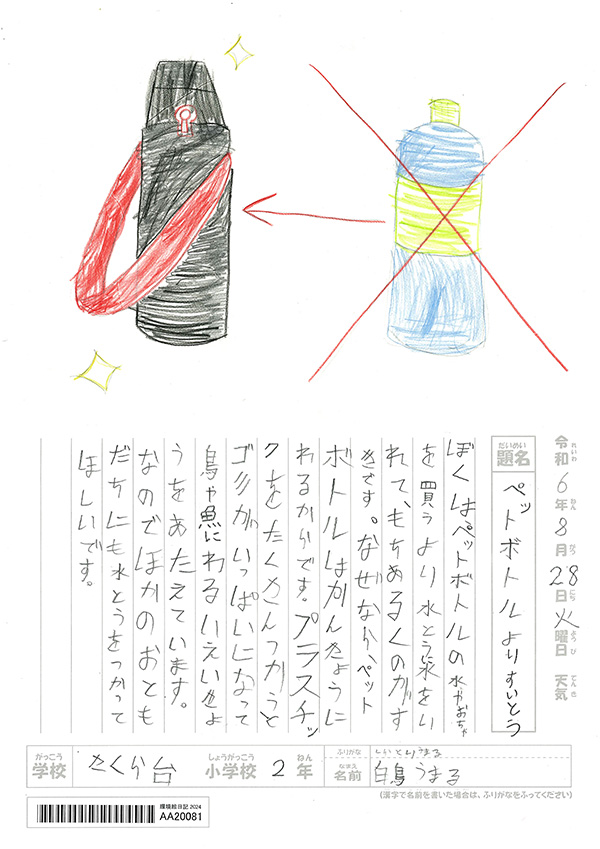 令和6年8月28日火曜日 天気
れいわ ねん がつ にち ようび てんき
だいめい
題名 ペットボトルよりすいとう
ぼくはペットボトルの水やおちゃ
を買うより水とうに氷をい
れて、もちあるくのがす
きです。なぜなら、ペット
ボトルはかんきょうに
わるからです。プラスチッ
クをたくさんつかうと
ゴミがいっぱいになって
鳥や魚にわるいえいきょ
うをあたえています。
なのでほかのおとも
だちにも水とうをつかって
ほしいです。
がっこう しょうがっこう ねん ふりがな
学校 さくら台 小学校 2年 なまえ 名前 白鳥うまる
(漢字で名前を書いた場合は、ふりがなをふってください)
環境絵日記 2024
AA20081